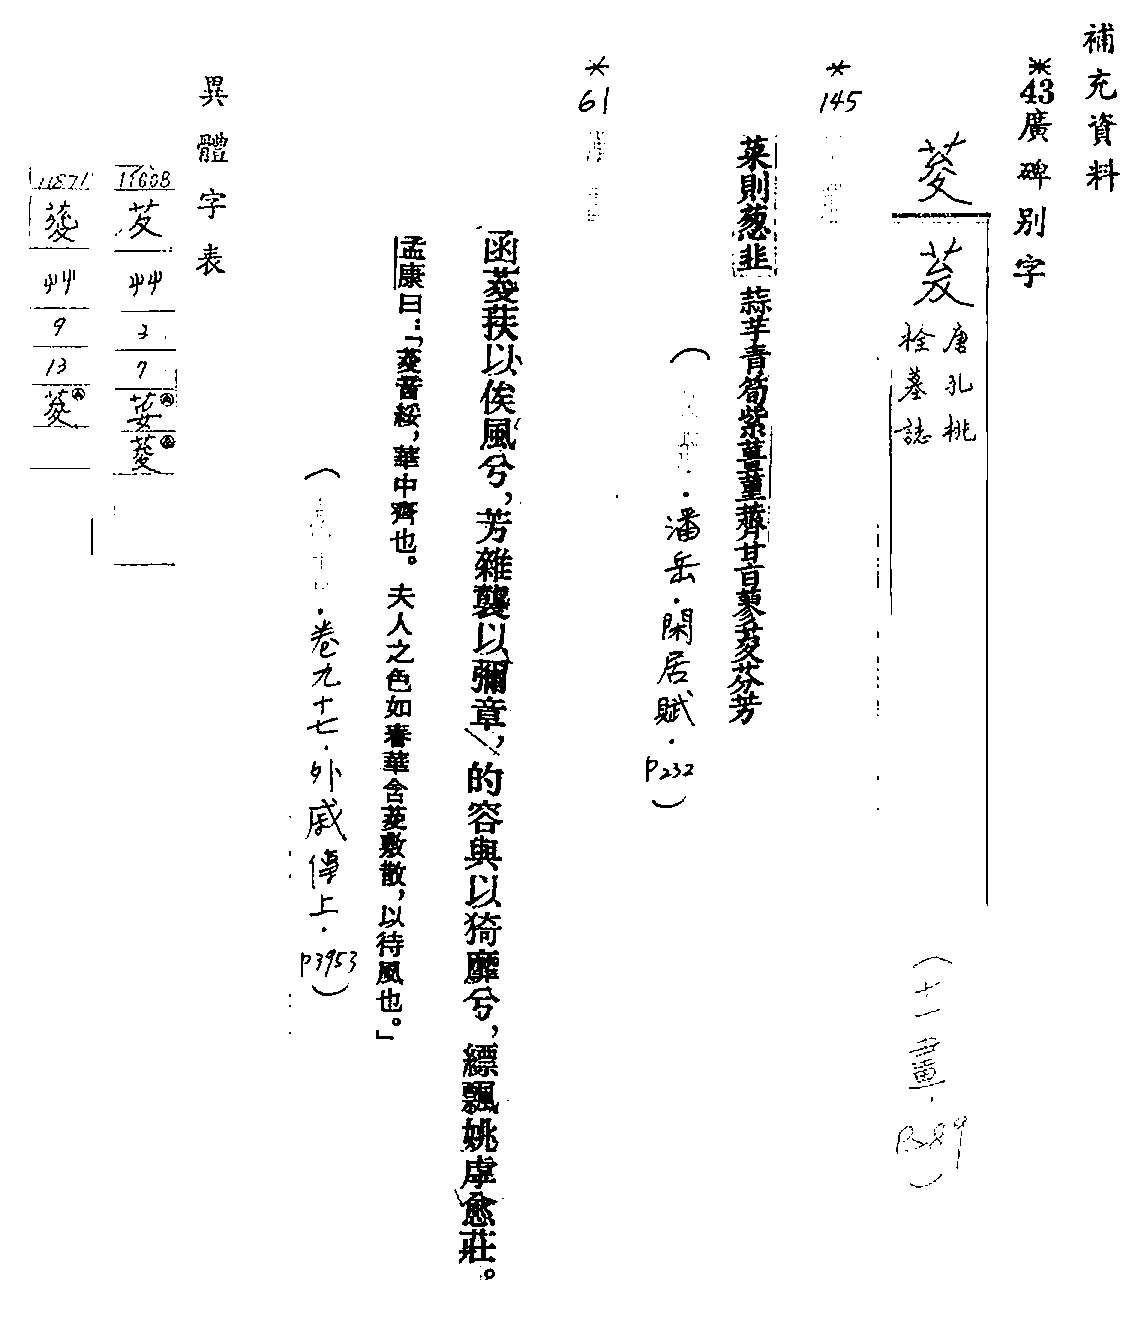 補充資料
*43廣碑別字
荽
荾
唐孔桃
栓墓誌
(十一畫．P289)
*
145
菜則葱韭蒜芋青筍紫薑堇薺甘旨蓼荾芬芳
(
．潘岳．閑居賦．P232)
*
61
函荾荴以俟風兮，芳雜襲以彌章，的容與以猗靡兮，縹飄姚虖愈莊。
孟康曰：「荾音綏，華中齊也。夫人之色如春華含荾敷散，以待風也。」
(
．卷九十七．外戚傳上．P3953)
異體字表
11608
艸
3
7
荽
葰
11871
艸
9
13
荾